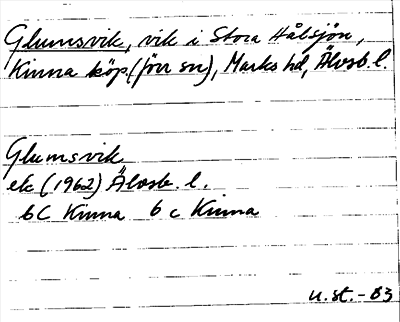 Glumsvik, vik i Stora Hålsjön,
Kinna köp. (förr sn), Marks hd, Älvsb. l.
Glumsvik
ek (1962) Älvsb. l.
6C Kinna 6c Kinna
u.st.-83